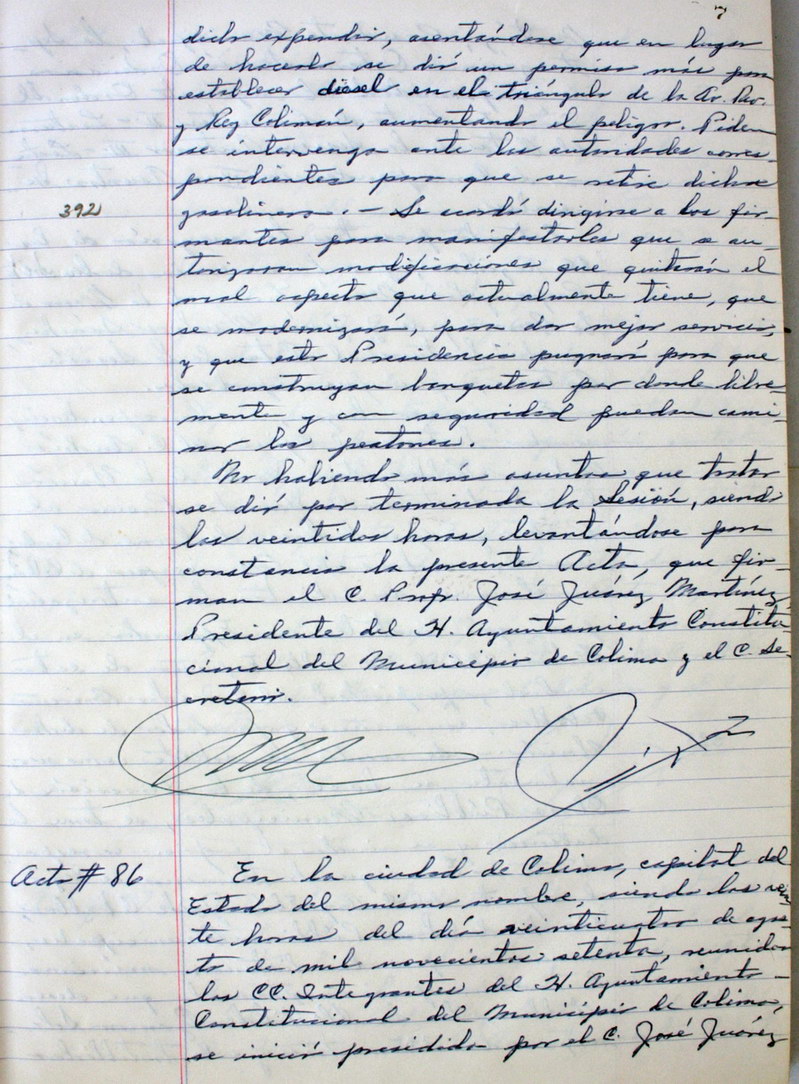 7
dicho expendio, asentándose que en lugar
de hacerlo se dió un permiso más para
establecer diesel en el triángulo de la Av. Rev.
y Rey Colimán, aumentando el peligro. Piden
se intervenga ante las autoridades corres-
pondientes para que se retire dicha
392
gasolinera. - Se acordó dirigirse a los fir-
mantes para manifestarles que se au-
torizaron modificaciones que quitarán el
mal aspecto que actualmente tiene, que
se modernizará, para dar mejor servicio,
y que esta Presidencia pugnará para que
se construyan banquetas por donde libre-
mente y con seguridad puedan cami-
nar los peatones.
No habiendo más asuntos que tratar
se dió por terminada la Sesión, siendo
las veintidos horas, levantándose para
constancia la presente Acta, que fir-
man el C. Profr. José Juárez Martínez,
Presidente del H. Ayuntamiento Constitu-
cional del Municipio de Colima y el C. Se-
cretario.
Acta # 86
En la ciudad de Colima, capital del
Estado del mismo nombre, siendo las vein-
te horas del día veinticuatro de agos-
to de mil novecientos setenta, reunidos
los CC. Integrantes del H. Ayuntamiento
Constitucional del Municipio de Colima,
se inició presidida por el C. José Juárez